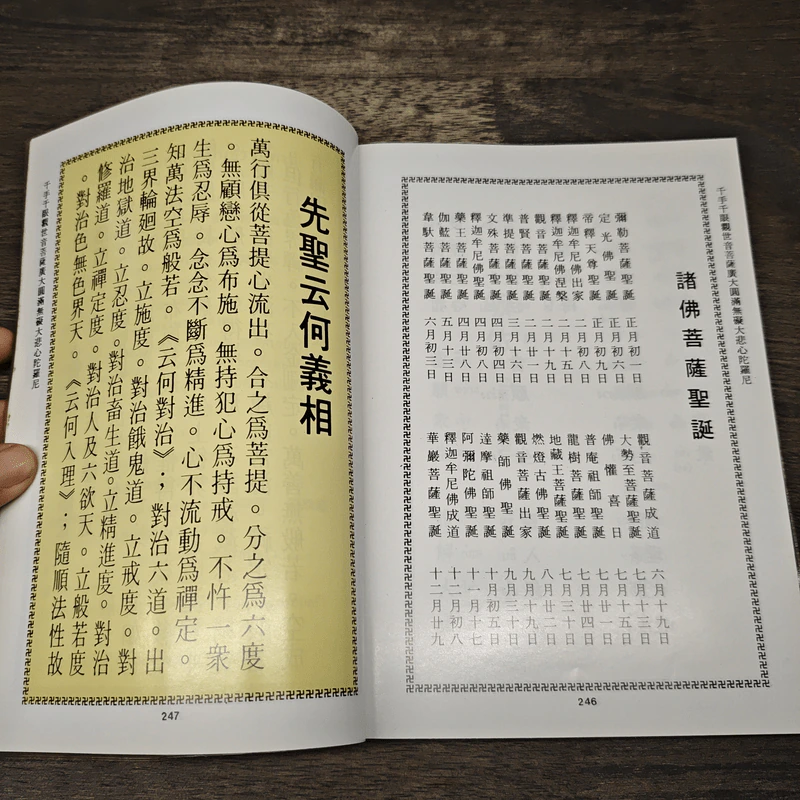 千手千眼觀世音菩薩廣大圓滿無礙大悲心陀羅尼
諸佛菩薩聖誕
彌勒菩薩聖誕 正月初一日
定光佛聖誕 正月初六日
帝釋天尊聖誕 正月初九日
釋迦牟尼佛出家 二月初八日
釋迦牟尼佛涅槃 二月十五日
觀音菩薩聖誕 二月十九日
普賢菩薩聖誕 二月廿一日
準提菩薩聖誕 三月十六日
文殊菩薩聖誕 四月初四日
釋迦牟尼佛聖誕 四月初八日
藥王菩薩聖誕 四月廿八日
伽藍菩薩聖誕 五月十三日
韋馱菩薩聖誕 六月初三日
觀音菩薩成道 六月十九日
大勢至菩薩聖誕 七月十三日
佛懽喜日 七月十五日
普庵祖師聖誕 七月廿一日
龍樹菩薩聖誕 七月廿四日
地藏王菩薩聖誕 七月三十日
燃燈古佛聖誕 八月廿二日
觀音菩薩出家 九月十九日
藥師佛聖誕 九月三十日
達摩祖師聖誕 十月初五日
阿彌陀佛聖誕 十一月十七
釋迦牟尼佛成道 十二月初八
華嚴菩薩聖誕 十二月廿九
246
先聖云何義相
萬行俱從菩提心流出。合之為菩提。分之為六度
。無顧戀心為布施。無持犯心為持戒。不忤一衆
生為忍辱。念念不斷為精進。心不流動為禪定。
知萬法空為般若。《云何對治》；對治六道。出
三界輪廻故。立施度。對治餓鬼道。立戒度。對
治地獄道。立忍度。對治畜生道。立精進度。對治
修羅道。立禪定度。對治人及六欲天。立般若度
。對治色無色界天。《云何入理》；隨順法性故
千手千眼觀世音菩薩廣大圓滿無礙大悲心陀羅尼
247